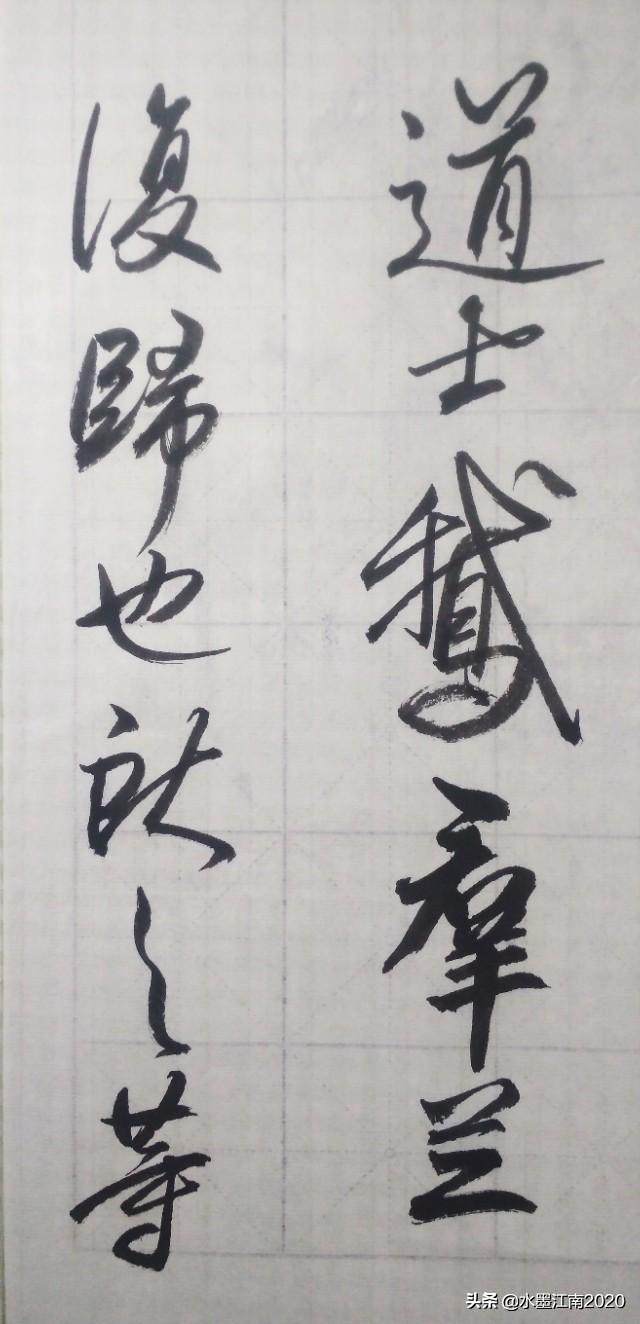 道士鵝羣並
復歸也獻之等
头条 @水墨江南2020